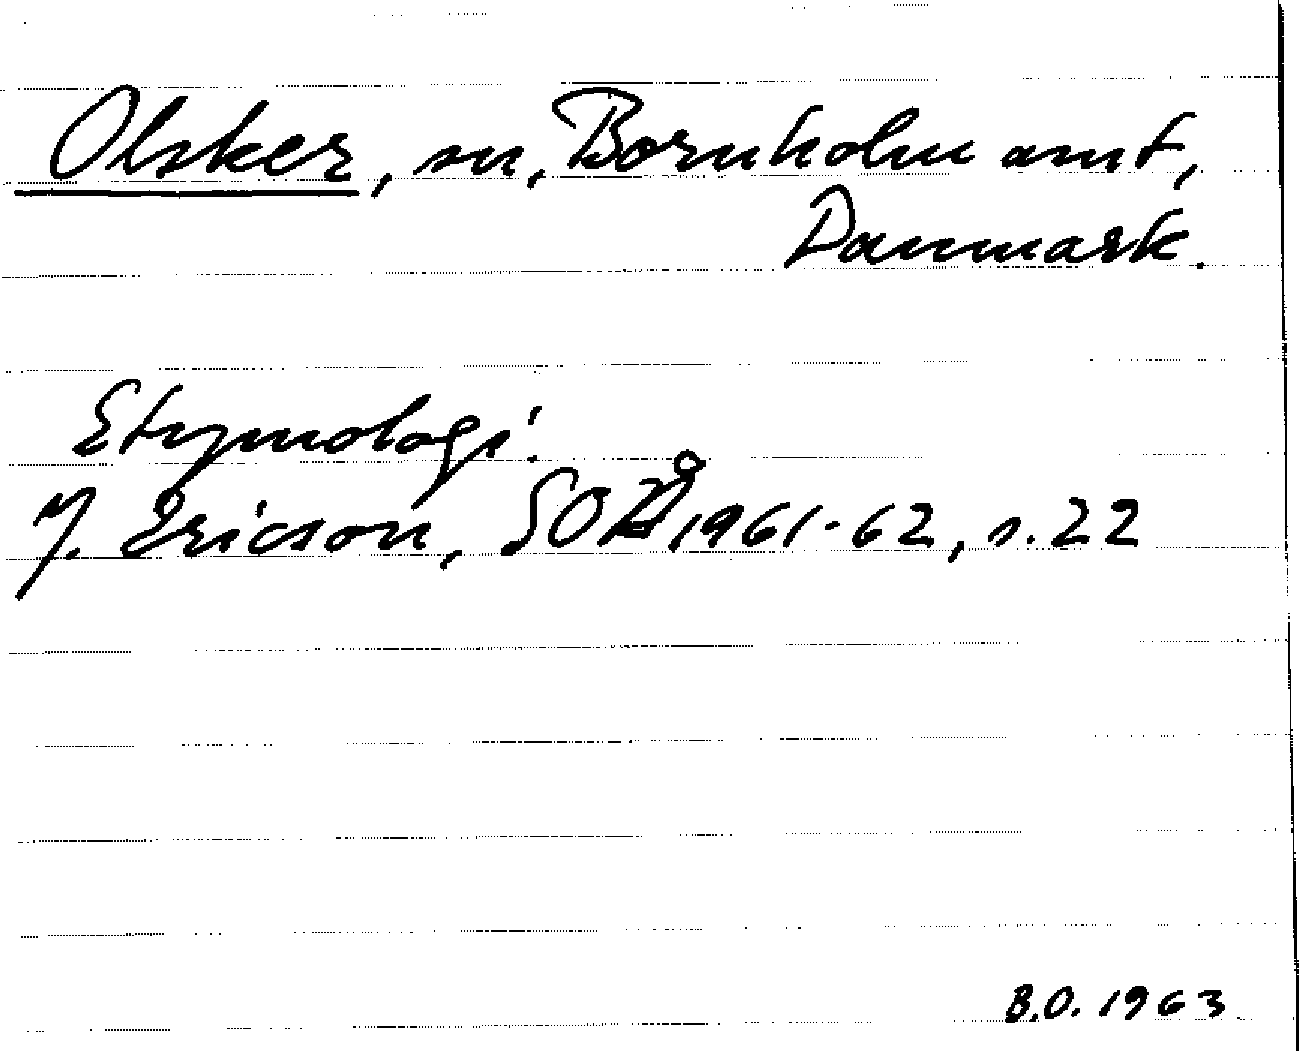 Olsker, sn, Bornholm amt,
Danmark.
Etymologi:
J. Ericson, SOÅ 1961-62, s. 22
B.O. 1963